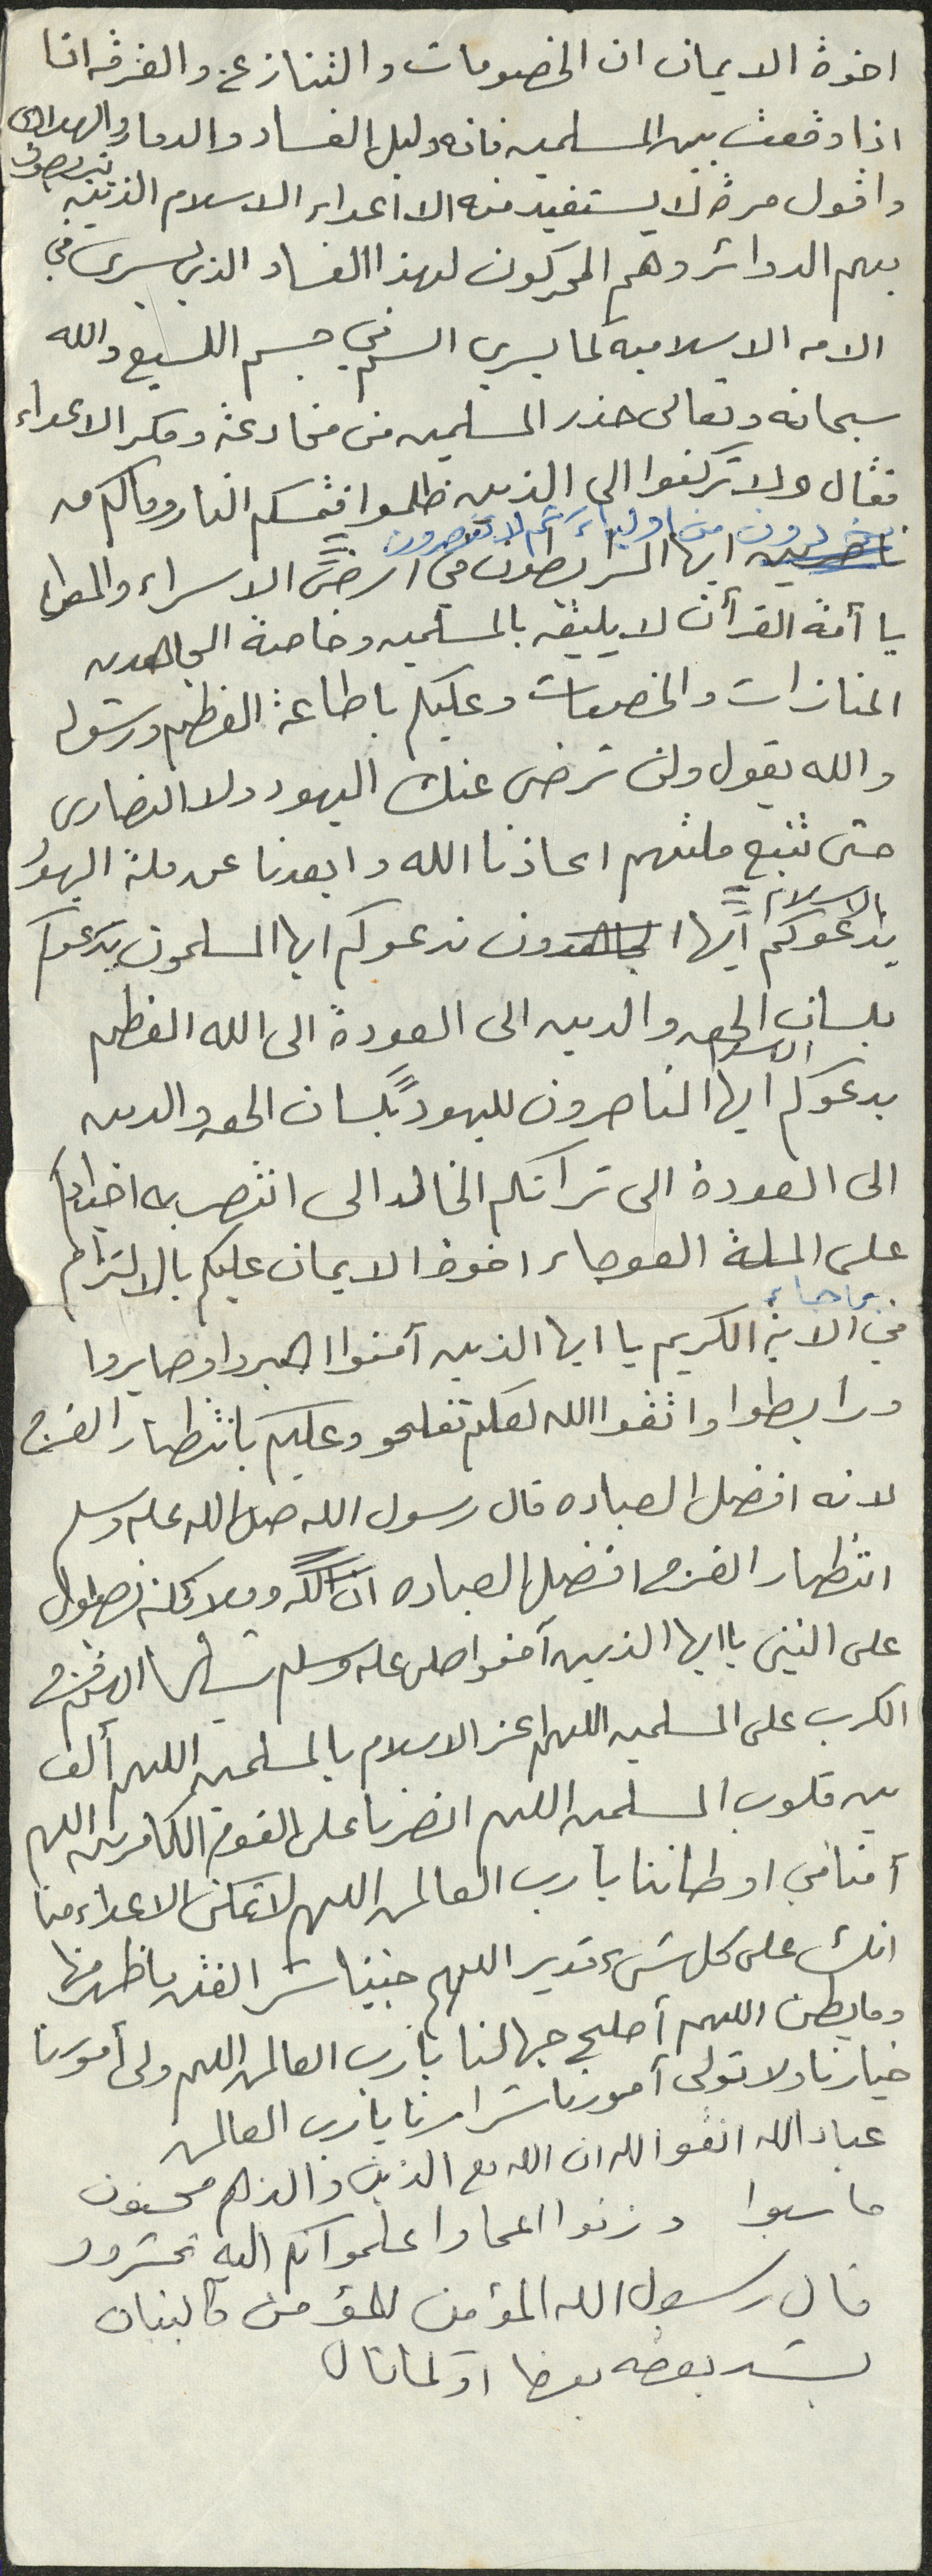 اخوة الايمان ان الخصومات والتنازع والفرقه انا
اذا وقعت بين المسلمين فانه دليل الفساد والدمار والهلاك
واقول مرة لا يستفيد منه الا اعداء الاسلام الذين يتربصون
بهم الدوائر وهم المحركون لهذا الفساد الذي يسري في
الامه الاسلامية كما يسري السم في جسم اللسيع والله
سبحانه وتعالى حذر المسلمين من مخادعة ومكر الاعداء
فقال ولا تركنوا الى الذين ظلموا فتمسكم النار ومالكم من
دون من اولياء ثم لا تنصرون
ايها المرابطون في ارض الاسراء والمعراج
يا أمة القرأن لا يليق بالمسلمين وخاصة المجاهدين
المنازات والخصومات وعليكم باطاعة العظيم ورسوله
والله يقول ولن ترضى عنك اليهود ولا النصارى
حتى تتبع ملتهم اعاذنا الله وابعدنا عن ملة اليهود
الاسلام
يدعوكم ايها المجاهدون ندعوكم ايها المسلمون يدعوكم
بلسان الحق والدين الى العودة الى الله العظيم
الاسلام
يدعوكم ايها الناصرون لليهود بلسان الحق والدين
الى العودة الى تراثكم الخالد الى انتصر به اجدادكم
على الملة العوجاء اخوة الايمان عليكم بالالتزام
بما جاء
في الاية الكريم يا ايها الذين آمنوا اصبروا وصابروا
ورابطوا واتقوا الله لعلكم تفلحو وعليكم بانتظار الفرج
لانه افضل العباده قال رسول الله صلى الله عليه وسلم
انتظار الفرج افضل العباده ان الله وملائكته يصلون
على النبي يا ايها الذين آمنوا صلى عليه وسلم
الكرب على المسلمين اللهم اعز الاسلام بالمسلمين اللهم ألف
بين قلوب المسلمين اللهم انصرنا على القوم الكافرين اللهم
أمنا في اوطاننا يا رب العالمين اللهم لا تمكن الاعداء منا
انك على كل شيء قدير اللهم جنبنا شر الفتن ما ظهر منها
وما بطن اللهم أصلح جهالنا يا رب العالمين اللهم ولى أمورنا
خيارنا ولا تولى أمورنا شرارنا يا رب العالمين
عباد الله اتقوا الله ان الله مع الذين والذين هم محسنون
حاسبوا وزنوا اعمالكم واعلموا انكم اليه تحشرون
قال رسول الله المؤمن للمؤمن كالبنيان
يشد بعضه بعضا او كما قال